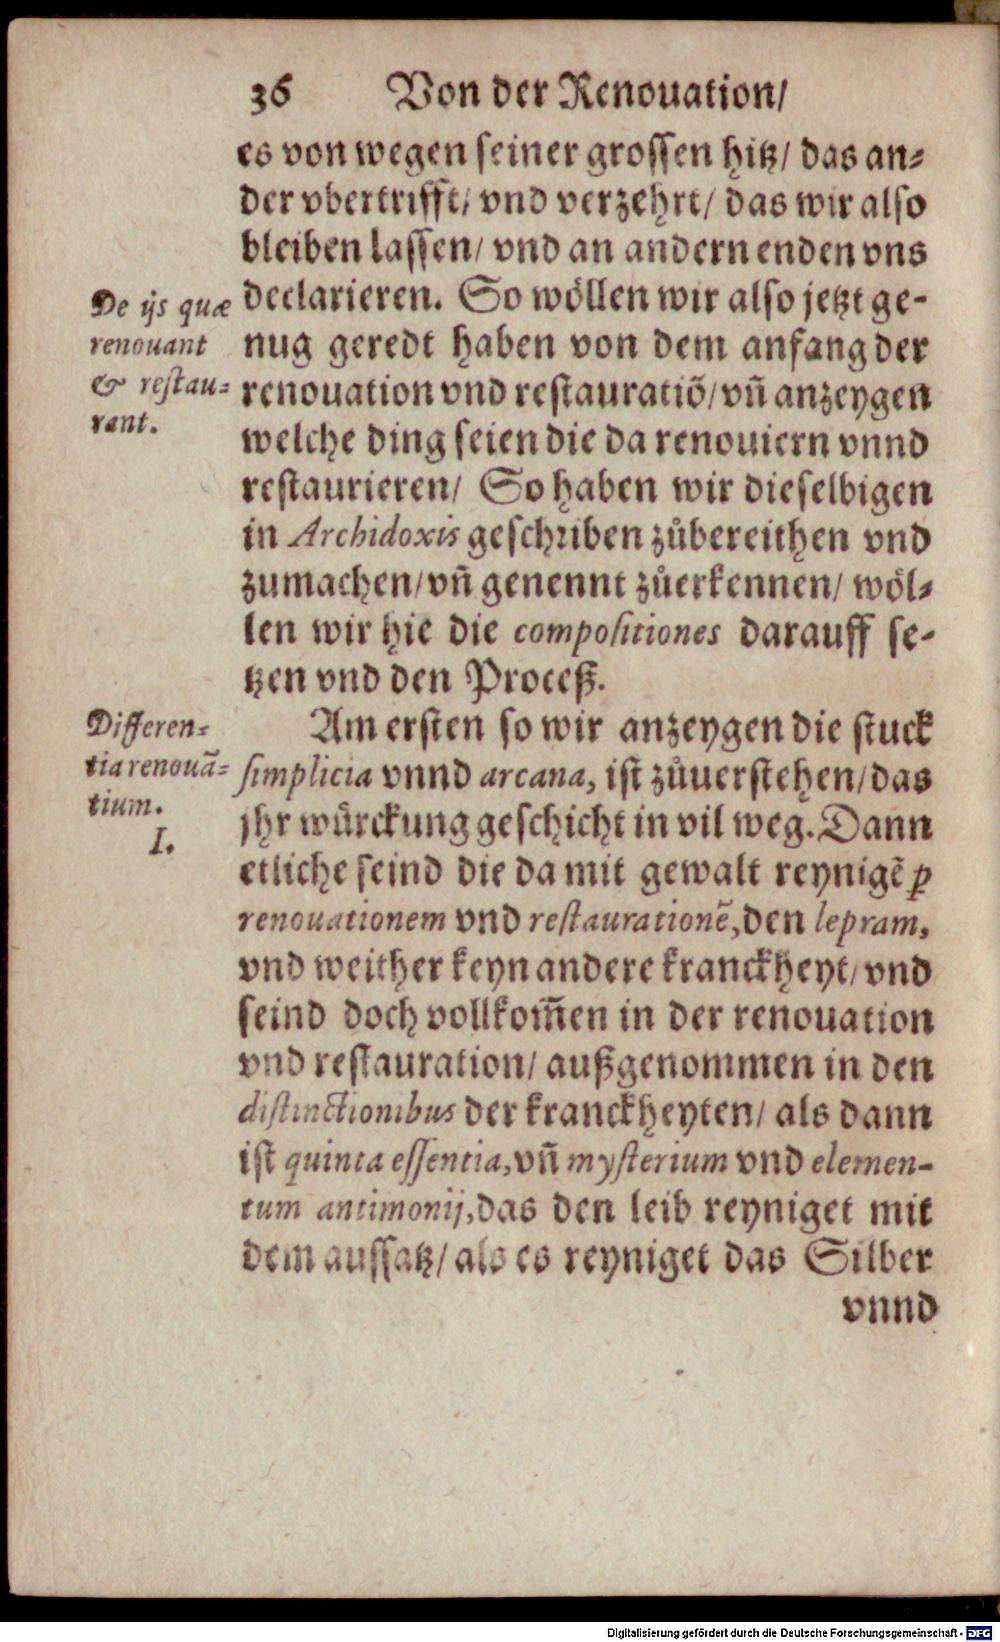 36 Von der Renouation/
es von wegen seiner grossen hitz/ das an-
der vbertrifft/ vnd verzehrt/ das wir also
bleiben lassen/ vnd an andern enden vns
declarieren. So wöllen wir also jetzt ge-
nug geredt haben von dem anfang der
renouation vnd restauratiõ/ vñ anzeygen
welche ding seien die da renouiern vnnd
restaurieren/ So haben wir dieselbigen
in Archidoxis geschriben zůbereithen vnd
zumachen/ vñ genennt zůerkennen/ wöl-
len wir hie die compositiones darauff se-
tzen vnd den Proceß.
De ijs quæ
renouant
& restau-
rant.
Am ersten so wir anzeygen die stuck
simplicia vnnd arcana, ist zůuerstehen/ das
jhr würckung geschicht in vil weg. Dann
etliche seind die da mit gewalt reynigẽ ꝑ
renouationem vnd restaurationẽ, den lepram,
vnd weither keyn andere kranckheyt/ vnd
seind doch vollkom̃en in der renouation
vnd restauration/ außgenommen in den
distinctionibus der kranckheyten/ als dann
ist quinta essentia, vñ mysterium vnd elemen-
tum antimonij, das den leib reyniget mit
dem aussatz/ als es reyniget das Silber
vnnd
Differen-
tia renouã-
tium.
I.
Digitalisierung gefördert durch die Deutsche Forschungsgemeinschaft - DFG